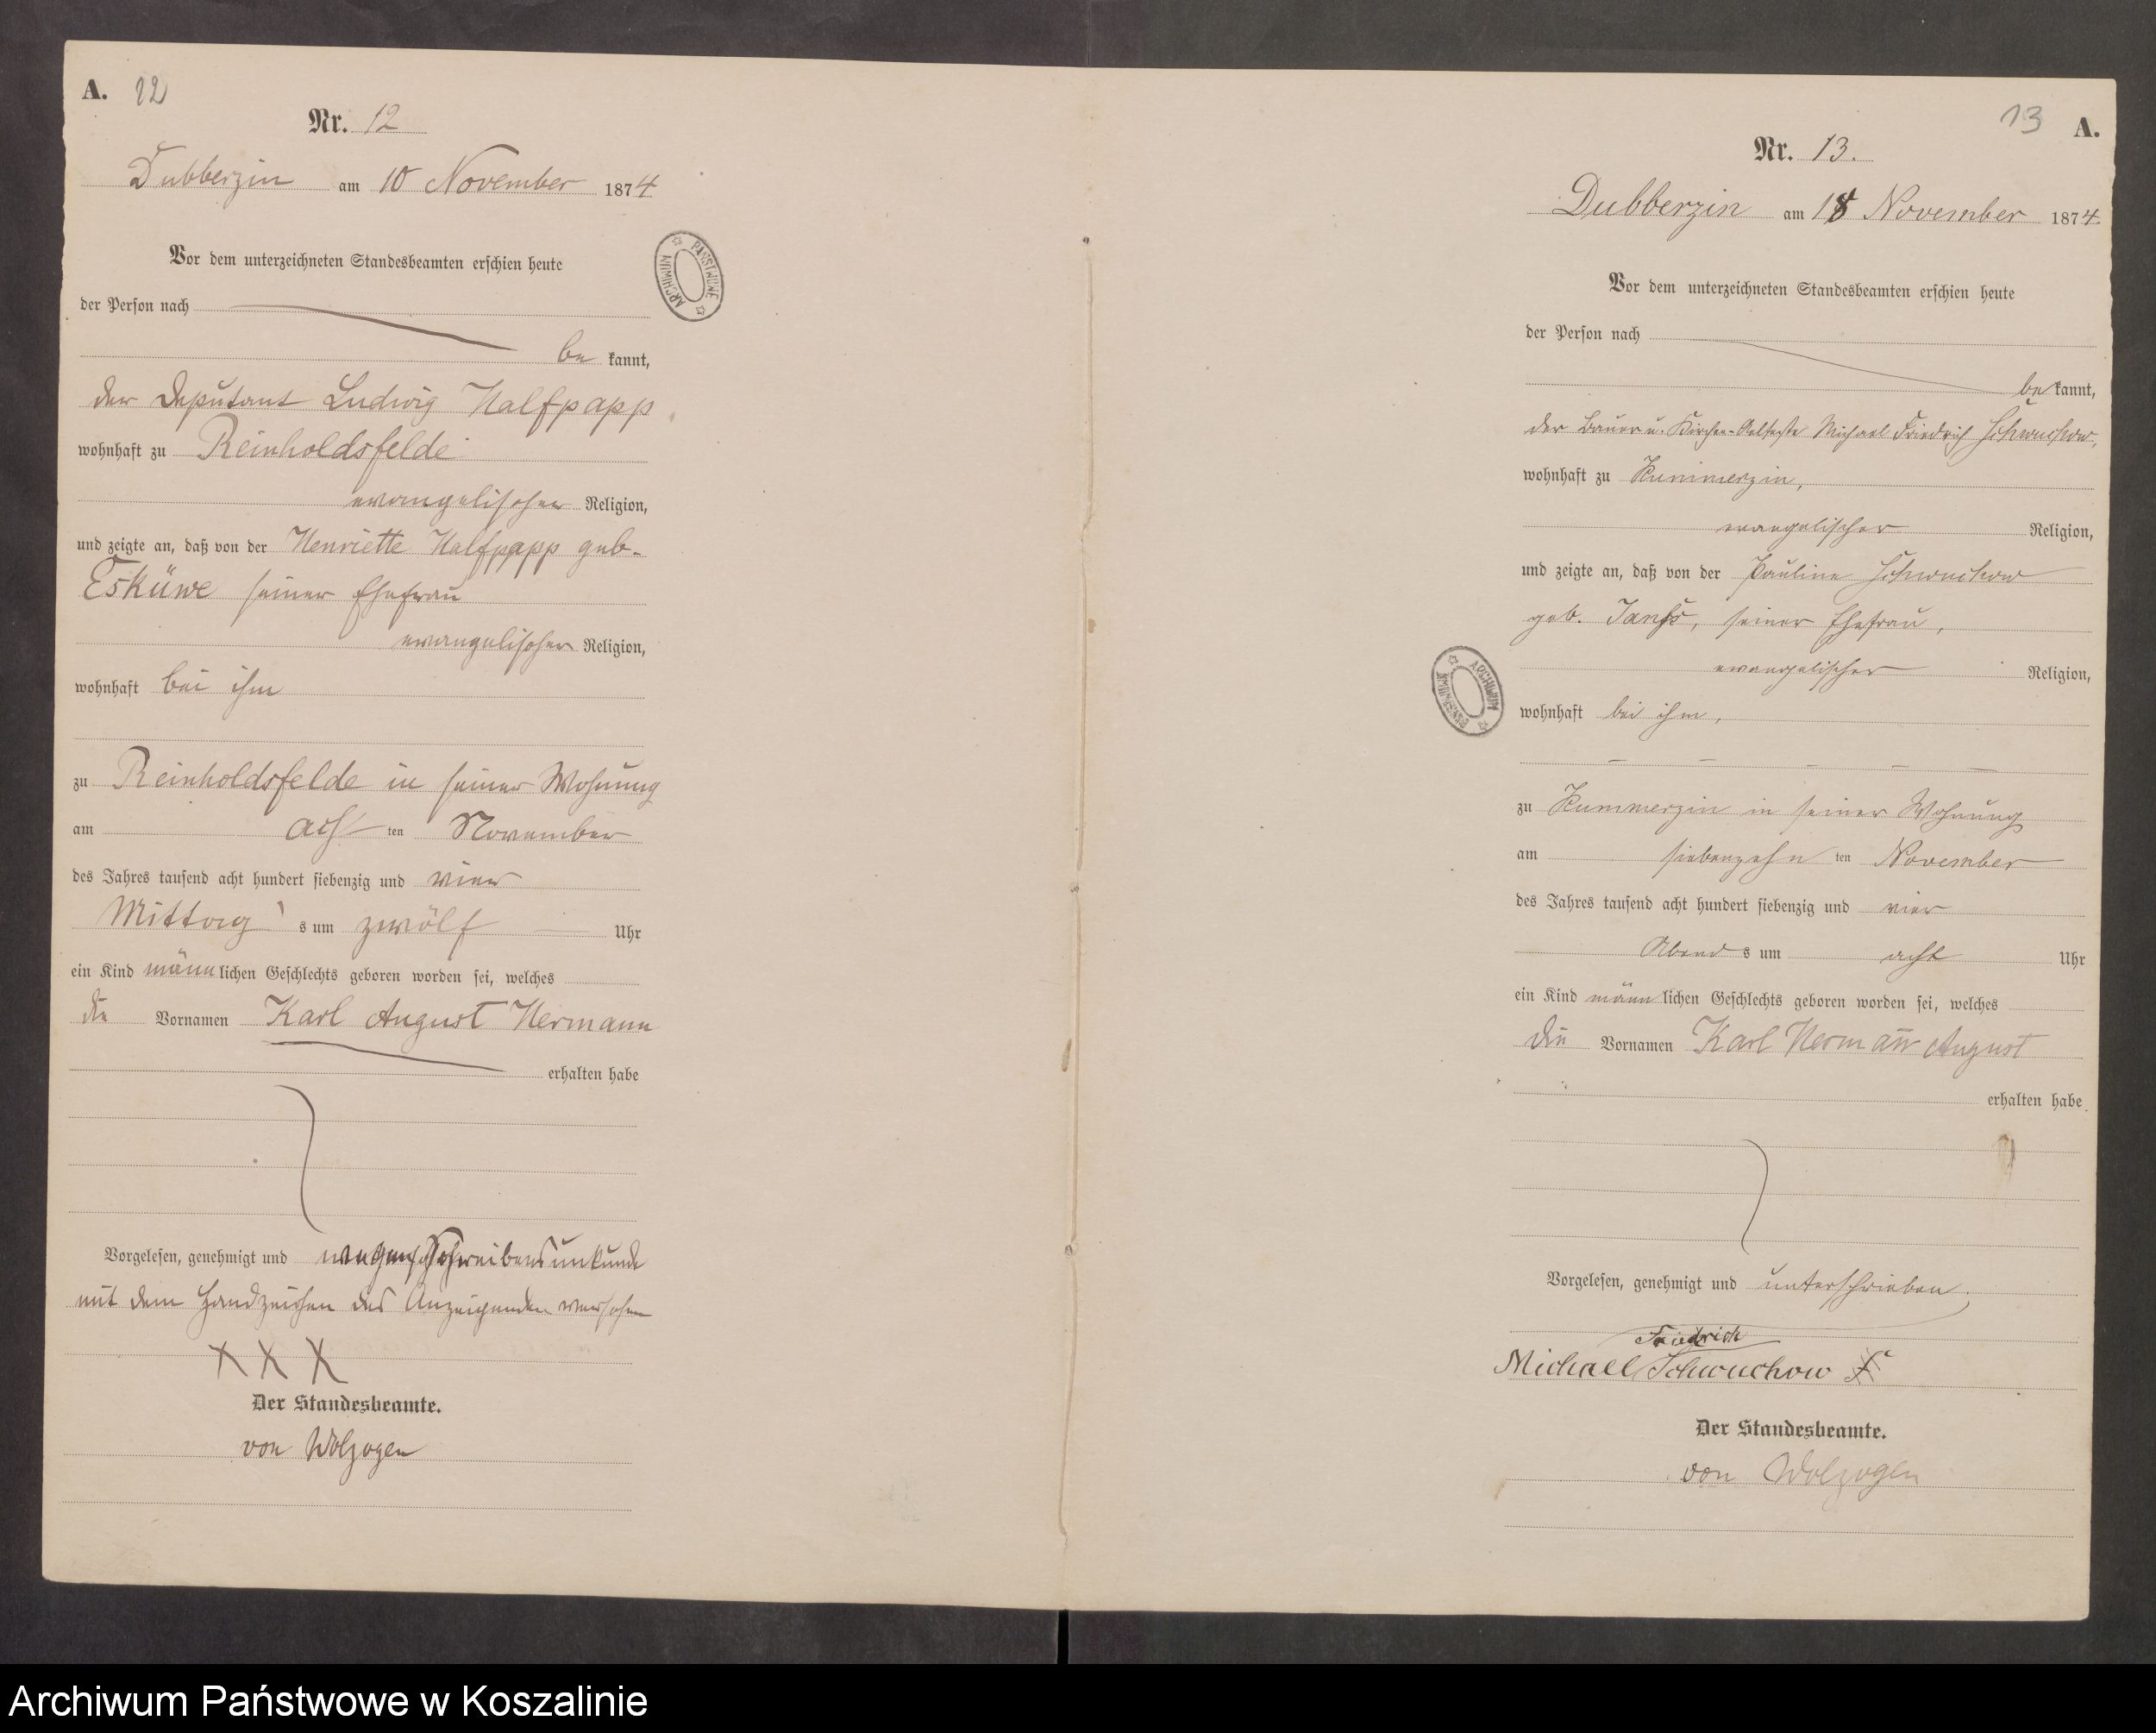 A. 12
Nr. 12
Dubberzin am 10 November 1874
Vor dem unterzeichneten Standesbeamten erschien heute
der Person nach
be kannt,
der Deputant Ludwig Halfpapp
wohnhaft zu Reinholdsfelde
evangelischer Religion,
und zeigte an, daß von der Henriette Halfpapp geb.
Esküwe seiner Ehefrau
evangelischer Religion,
wohnhaft bei ihm
zu Reinholdsfelde in seiner Wohnung
am acht ten November
des Jahres tausend acht hundert siebenzig und vier
Mittag s um zwölf Uhr
ein Kind männlichen Geschlechts geboren worden sei, welches
die Vornamen Karl August Hermann
erhalten habe
Vorgelesen, genehmigt und wegen Schreibensunkunde
mit dem Handzeichen des Anzeigenden versehen
X X X
Der Standesbeamte.
von Wolzogen
ARCHIWUM PAŃSTWOWE
13 A.
Nr. 13.
Dubberzin am 18 November 1874.
Vor dem unterzeichneten Standesbeamten erschien heute
der Person nach
be kannt,
der Bauer u. Kirchen-Aelteste Michael Friedrich Schwuchow,
wohnhaft zu Kummerzin,
evangelischer Religion,
und zeigte an, daß von der Pauline Schwuchow
geb. seiner Ehefrau,
evangelischer Religion,
wohnhaft bei ihm,
zu Kummerzin in seiner Wohnung
am siebenzehn ten November
des Jahres tausend acht hundert siebenzig und vier
Abend s um acht Uhr
ein Kind männlichen Geschlechts geboren worden sei, welches
die Vornamen Karl Hermann August
erhalten habe
Vorgelesen, genehmigt und unterschrieben.
Friedrich
Michael Schwuchow
Der Standesbeamte.
von Wolzogen
ARCHIWUM PAŃSTWOWE
Archiwum Państwowe w Koszalinie